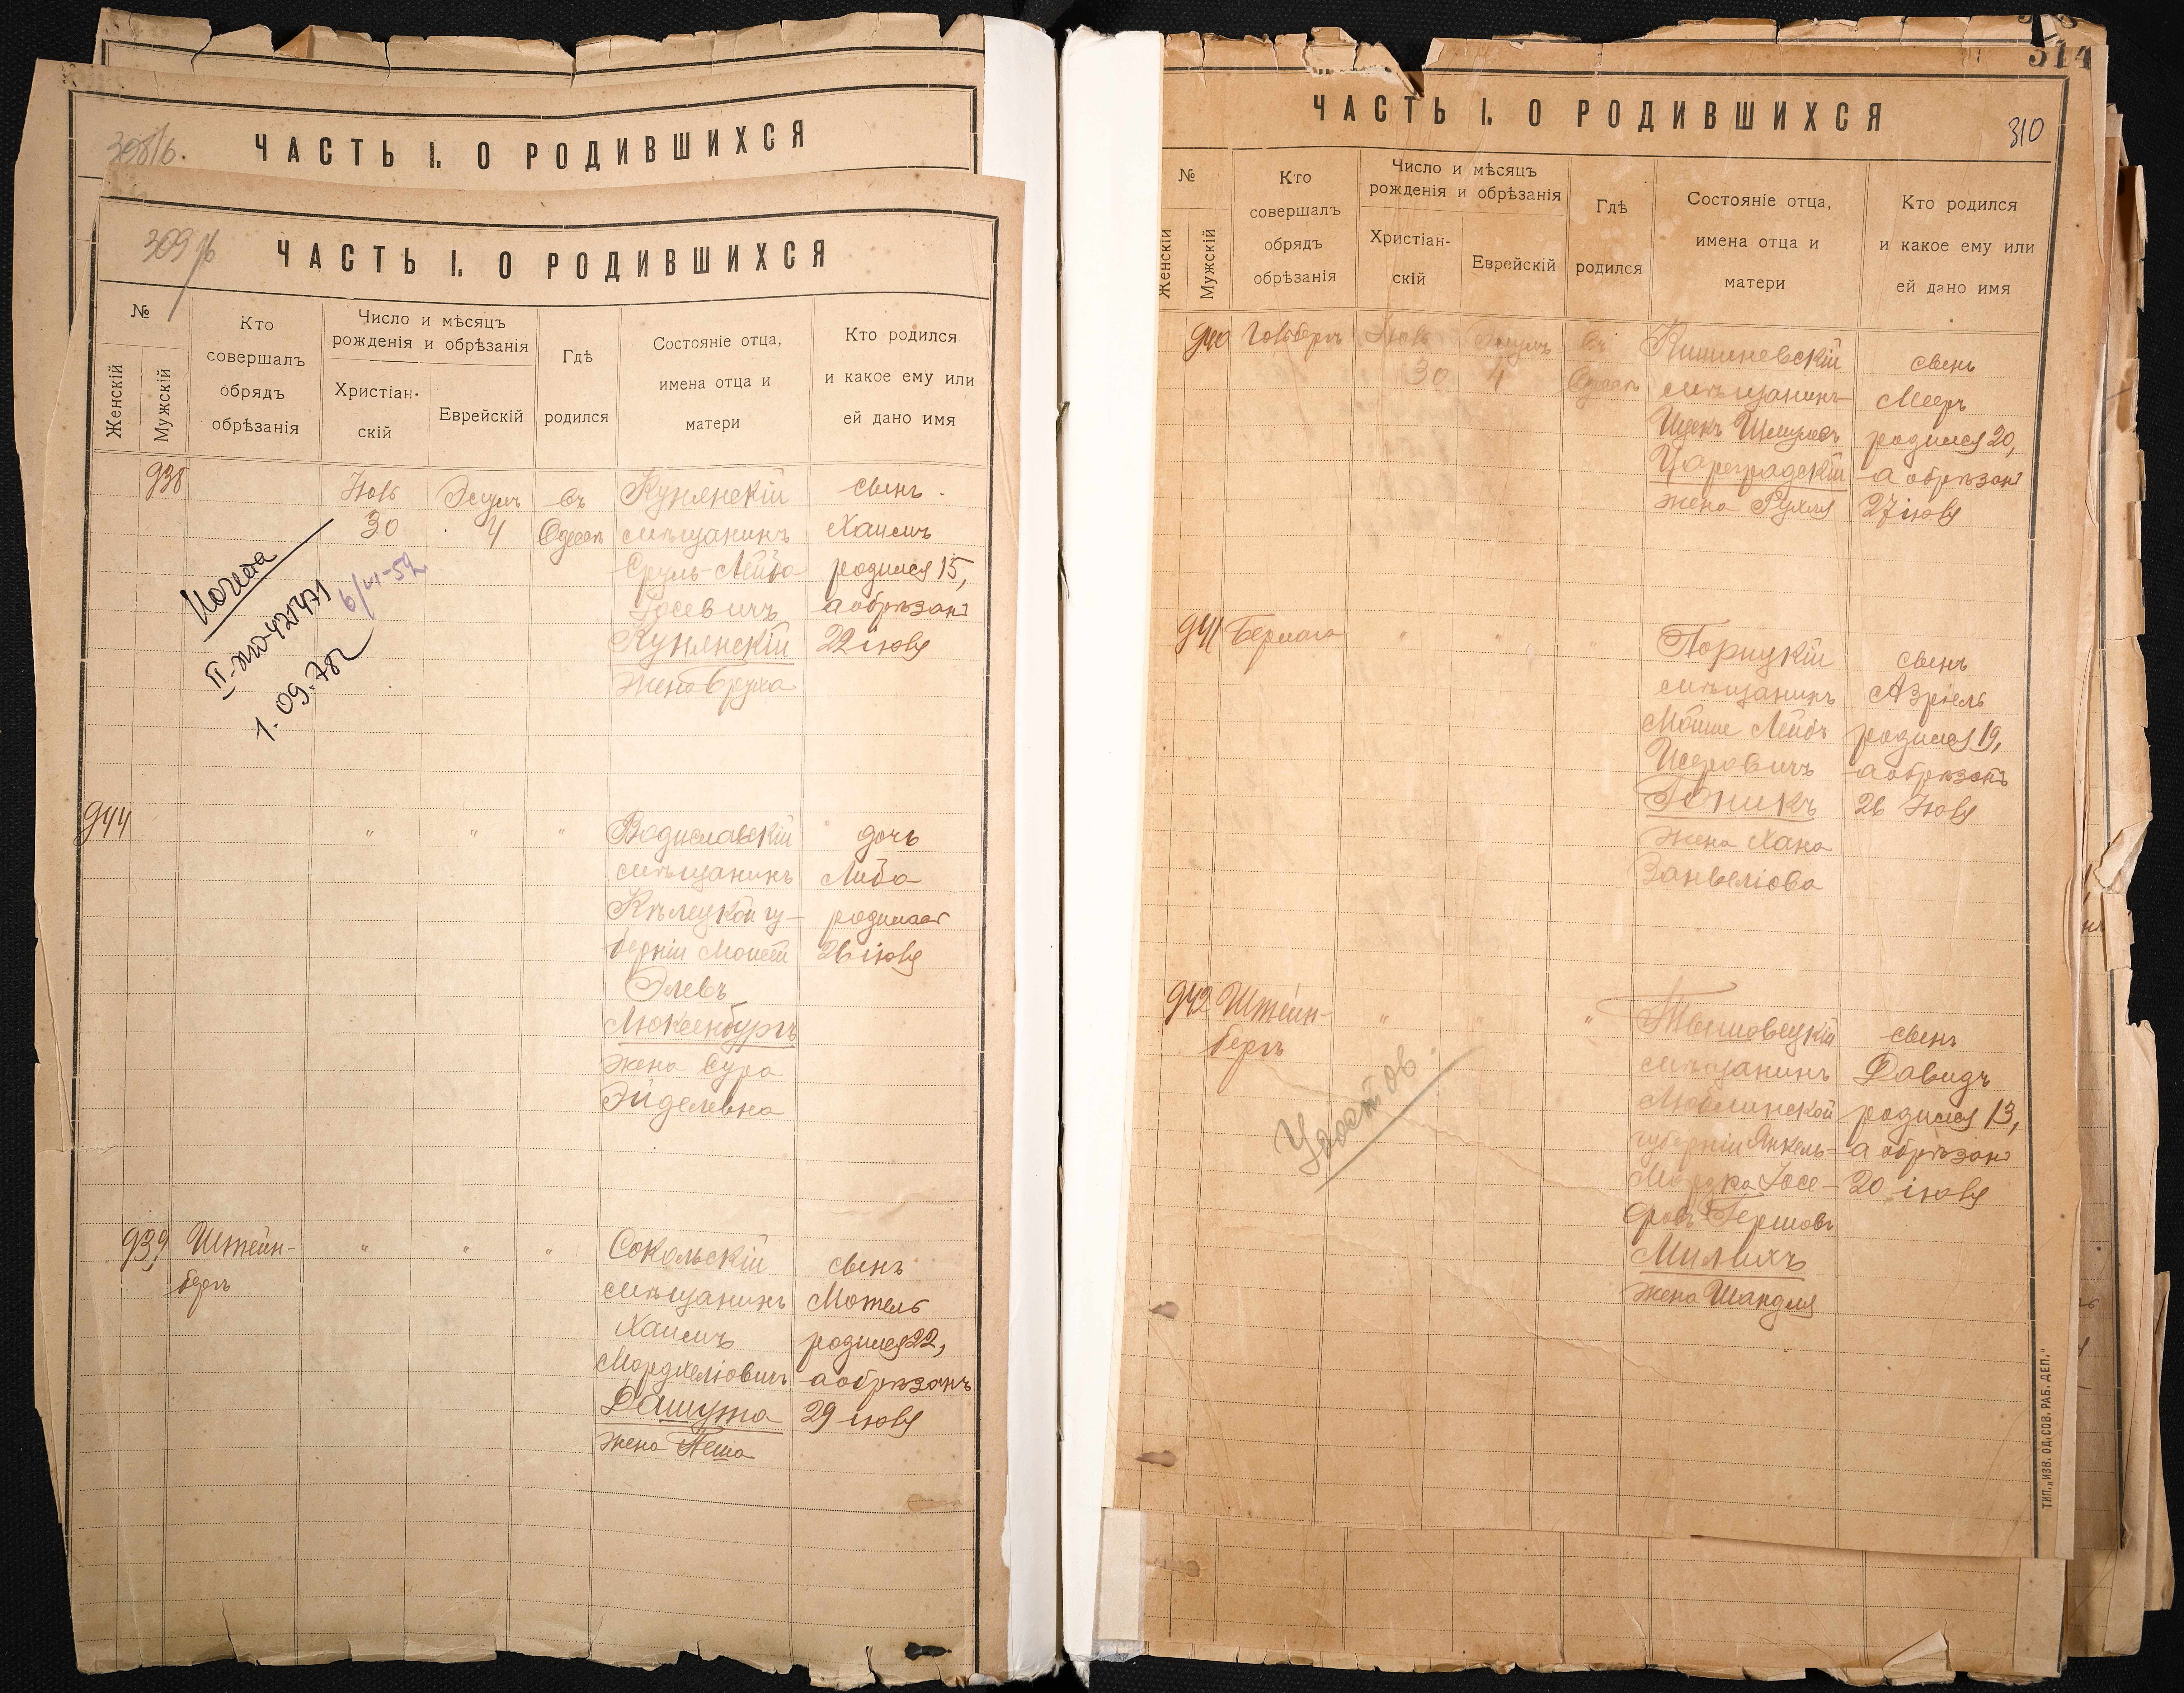 308/б.
ЧАСТЬ I. О РОДИВШИХСЯ
309/б
ЧАСТЬ I. О РОДИВШИХСЯ
№
Женскій
Мужскій
Кто
совершалъ
обрядъ
обрѣзанія
Число и мѣсяцъ
рожденія и обрѣзанія
Христіан-
скій
Еврейскій
Гдѣ
родился
Состояніе отца,
имена отца и
матери
Кто родился
и какое ему или
ей дано имя
938
Іюль
30
4
въ
Одессѣ
Кунянскій
мѣщанинъ
Сруль-Лейба
Іосевичъ
Кунянскій
жена Бруха
сынъ
Хаимъ
родился 15,
а обрѣзанъ
22 іюля
Копия
6/VI-52
1.09.78г
944
" " "
Водиславскій
мѣщанинъ
Кѣлецкой гу-
берніи Моисей
Элевъ
Люксенбургъ
жена Сура
Эйделевна
дочь
Либа
родилась
26 іюля
939
Штейн-
бергъ
" " "
Сокольскій
мѣщанинъ
Хаимъ
Мордхеліовичъ
Дашута
жена Пеша
сынъ
Мотель
родился 22,
а обрѣзанъ
29 іюля
314
ЧАСТЬ I. О РОДИВШИХСЯ
310
№
Женскій
Мужскій
Кто
совершалъ
обрядъ
обрѣзанія
Число и мѣсяцъ
рожденія и обрѣзанія
Христіан-
скій
Еврейскій
Гдѣ
родился
Состояніе отца,
имена отца и
матери
Кто родился
и какое ему или
ей дано имя
940
Гольбергъ
Іюль
30
4
въ
Одессѣ
Кишиневскій
мѣщанинъ
Ицекъ Шмулевъ
Цареградскій
жена Рухля
сынъ
Мееръ
родился 20,
а обрѣзанъ
27 іюля
941
" "
Порицкій
мѣщанинъ
Мойше Лейбъ
Исеровичъ
жена Хана
Занвеліова
сынъ
Азріель
родился 19,
а обрѣзанъ
26 Іюля
942
Штейн-
бергъ
" " "
Тышовецкій
мѣщанинъ
Люблинской
губерніи Янкель-
Гершовъ
Милихъ
жена Шандля
сынъ
Давидъ
родился 13,
а обрѣзанъ
20 іюля
Удостов.
ТИП. „ИЗВ. ОД. СОВ. РАБ. ДЕП."